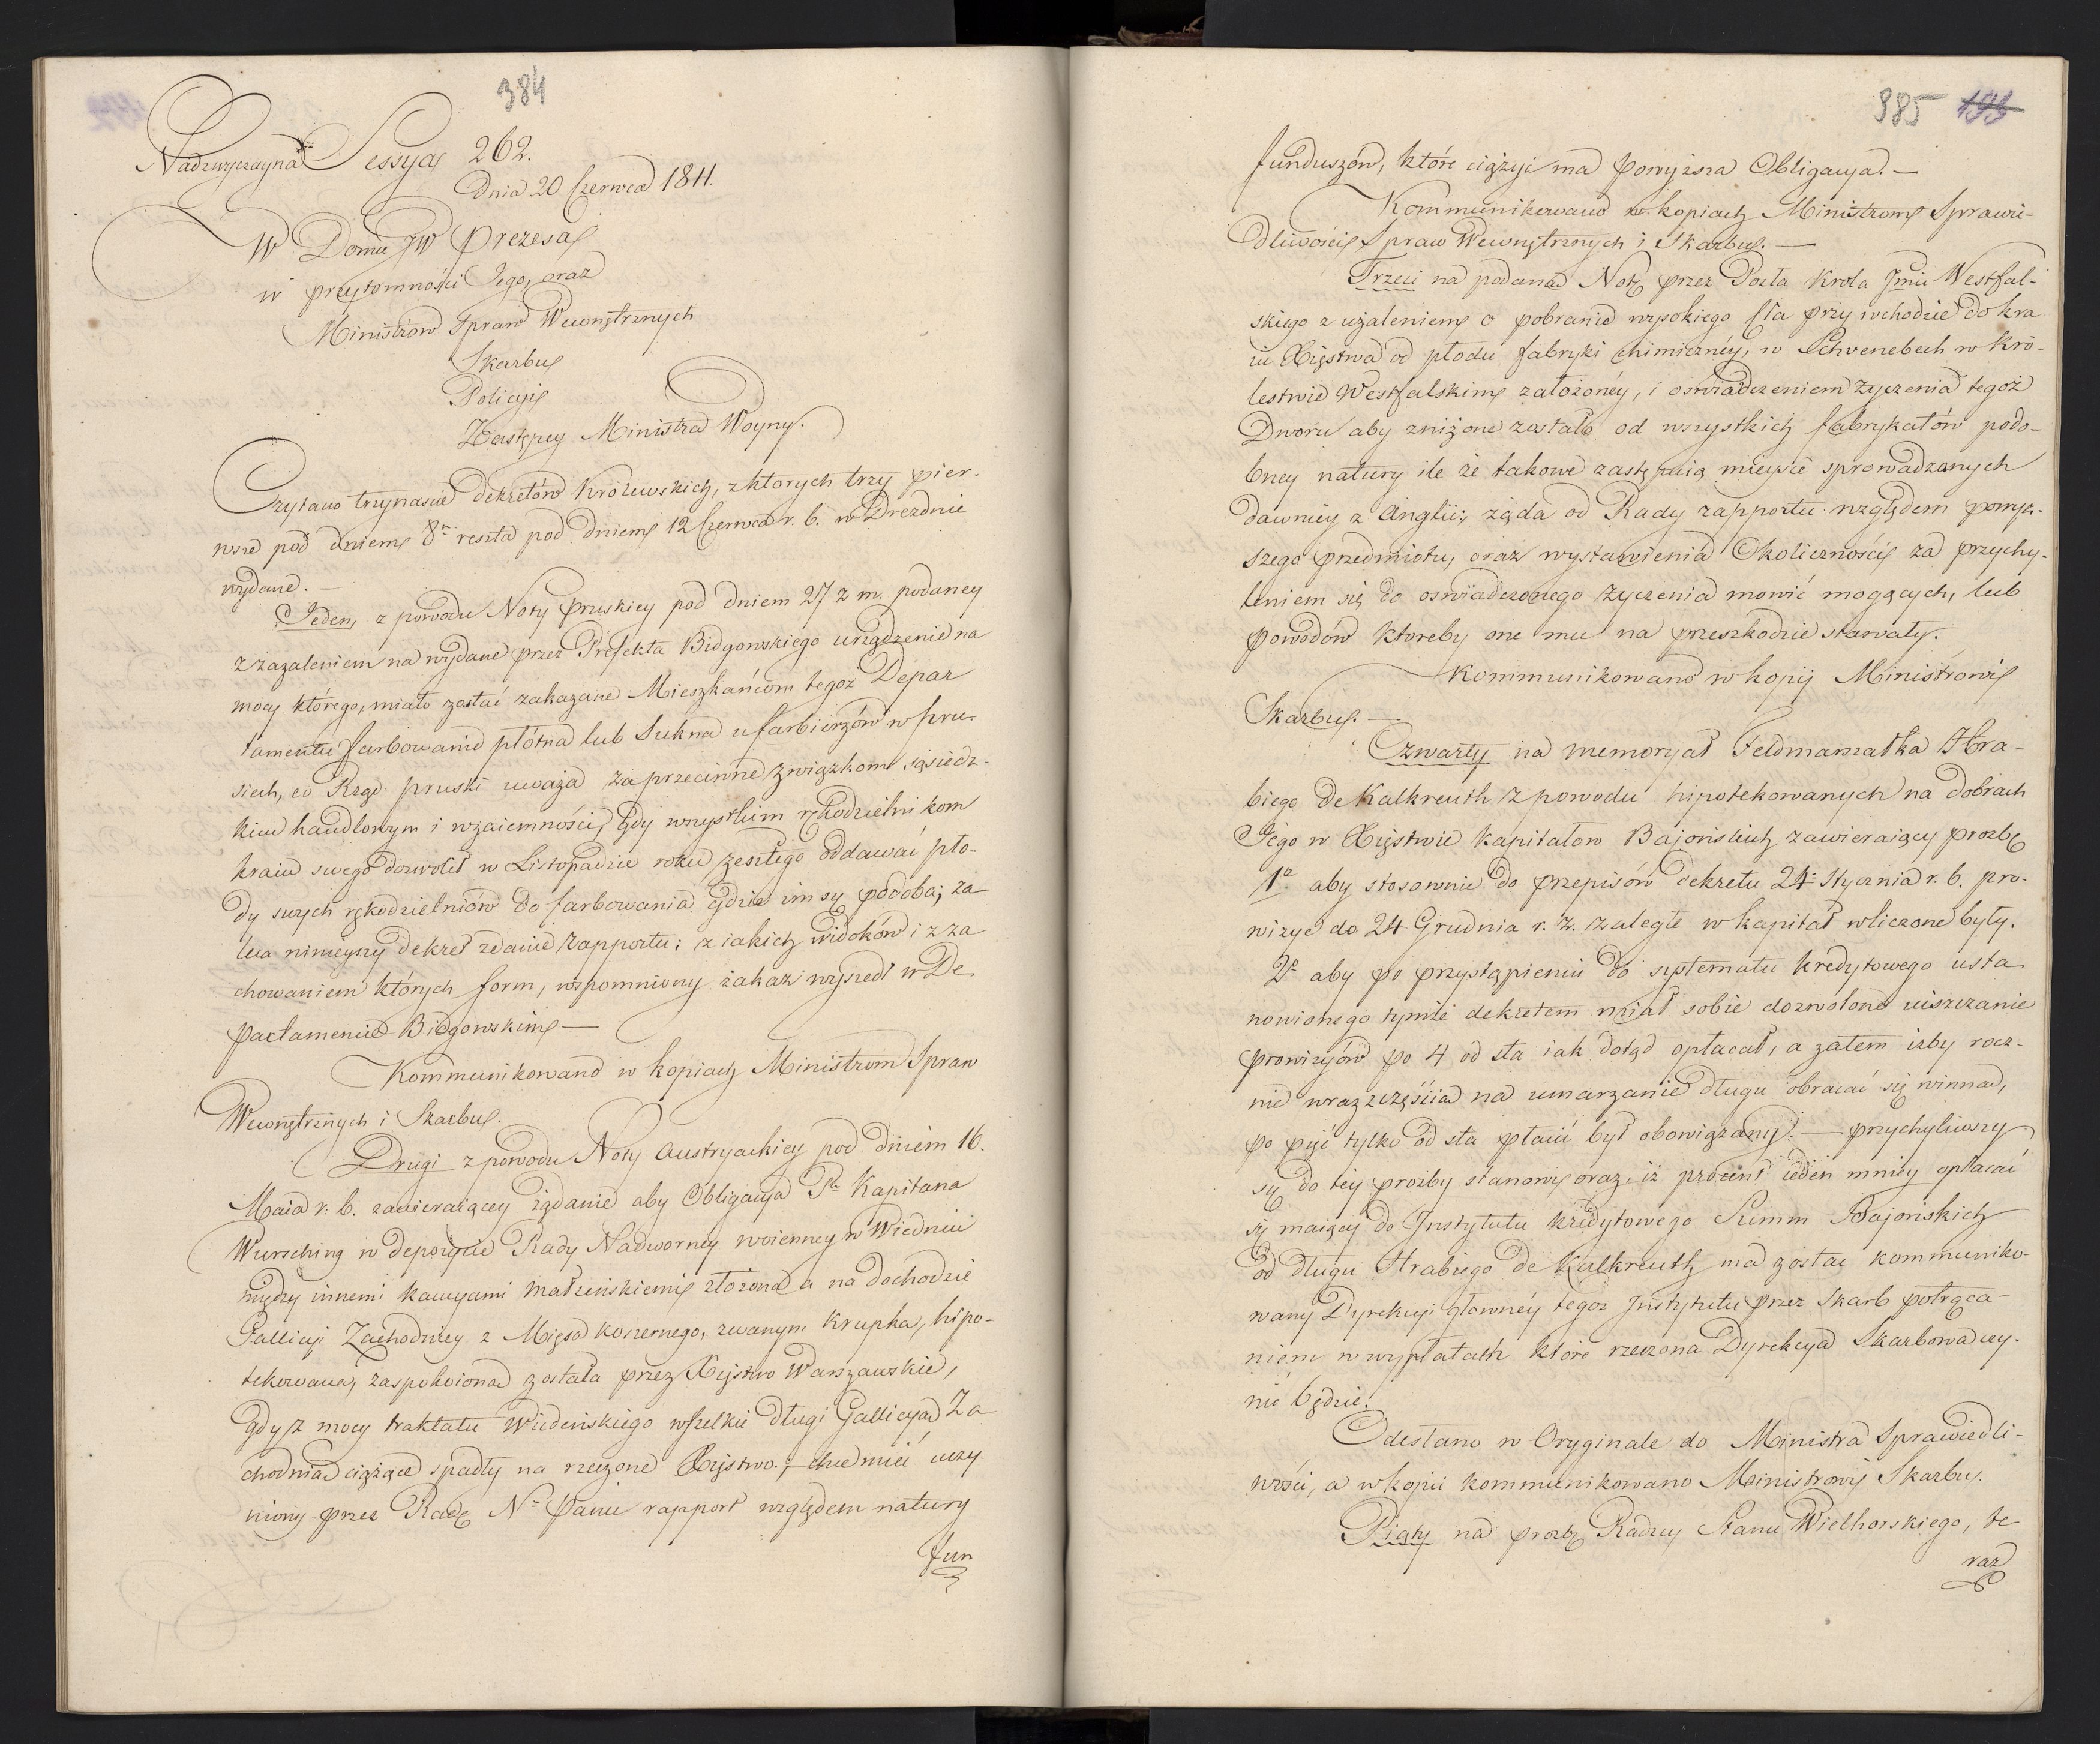 384
Nadzwyczayna Sessya 262.
Dnia 20 Czerwca 1811.
W Domu JW Prezesa
w przytomności Jego, oraz
Ministrów Spraw Wewnętrznych
Skarbu
Policyi
Zastępcy Ministra Woyny.
Czytano trzynaście dekretów Królewskich, z ktorych trzy pier-
wsze pod dniem 8 reszta pod dniem 12 Czerwca r. b. w Dreznie
wydane. —
Jeden, z powodu Noty pruskiey pod dniem 27 z. m. podaney
z zażaleniem na wydane przez Prefekta Bidgoskiego urządzenie na
mocy którego, miało zostać zakazane Mieszkańcom tegoż Depar
tamentu farbowanie płótna lub Sukna u farbierzów w Pru-
siech, co Rząd pruski uważa za przeciwne związkom sąsiedz-
kim handlowym i wzaiemności, gdy wszystkim rękodzielnikom
kraiu swego dozwolił w Listopadzie roku zeszłego oddawać pło-
dy swych rękodzielniów do farbowania gdzie im się podoba; za
leca ninieyszy dekret zdanie rapportu; z iakich widoków i z za
chowaniem których form, wspomniony zakaz wyszedł w De
partamencie Bidgowskim —
Kommunikowano w kopiach Ministrom Spraw
Wewnętrznych i Skarbu.
Drugi z powodu Noty Austryackiey pod dniem 16.
Maia r. b. zawieraiącey żądanie aby Obligacya Kapitana
Wursching w depozycie Rady Nadworney woienney w Wiedniu
między innemi kaucyami małżeńskiemi złożona a na dochodzie
Gallicyi Zachodniey z Mięsa koszernego, zwanym Krupka, hipo-
tekowana, zaspokoiona została przez Xięstwo Warszawskie,
gdy z mocy traktatu Wiedeńskiego wszelkie długi Gallicyą Za
chodnią ciążące spadły na rzeczone Xięstwo; — chce mieć uczy
niony przez Radę N Panu rapport względem natury
fun
385 193
funduszów, które ciążyć ma powyższa Obligacya. —
Kommunikowano w kopiach Ministrom Sprawie-
dliwości Spraw Wewnętrznych i Skarbu. —
Trzeci na podaną Notę przez Posła Krola Jmci Westfal-
skiego z użaleniem o pobranie wysokiego Cła przy wchodzie do kra
iu Xięstwa od płodu fabryki chimiczney, w Schvenebech w Kró-
lestwie Westfalskim założoney, i oświadczeniem życzenia tegoż
Dworu aby zniżone zostało od wszystkich fabrykatów podo-
bney natury ile że takowe zastępuią mieysce sprowadzanych
dawniey z Anglii; żąda od Rady rapportu względem powyż-
szego przedmiotu, oraz wystawienia Okoliczności za przychy-
leniem się do oświadczonego życzenia mowić mogących, lub
powodów ktoreby one mu na przeszkodzie stawały.
Kommunikowano w kopij Ministrowi
Skarbu. —
Czwarty na memoryał Feldmarszałka Hra-
biego de Kalkreuth z powodu hipotekowanych na dobrach
Jego w Xięstwie kapitałow Bajońskich zawieraiący prozbę
1º aby stosownie do przepisów dekretu 24 Stycznia r. b. pro-
wizye do 24 Grudnia r. z. zaległe w kapitał wliczone były.
2º aby po przystąpieniu do systematu kredytowego usta
nowionego tymże dekretem miał sobie dozwolone uiszczanie
prowizyów po 4 od sta iak dotąd opłacał, a zatem iżby rocz-
nie wraz z częścią na umarzanie długu obracać się winną,
po pięć tylko od sta płacić był obowiązany. — przychyliwszy
się do tey prozby stanowi oraz, iż procent ieden mniey opłacać
się maiący do Instytutu kredytowego Summ Bajońskich
od długu Hrabiego de Kalkreuth ma zostać kommuniko-
wany Dyrekcyi głowney tegoż Instytutu przez Skarb potrąca-
niem w wypłatach które rzeczona Dyrekcya Skarbowa czy-
nić będzie.
Odesłano w Oryginale do Ministra Sprawiedli-
wości, a w kopii kommunikowano Ministrowi Skarbu.
Piąty na prozbę Radzcy Stanu Wielhorskiego, te
raz